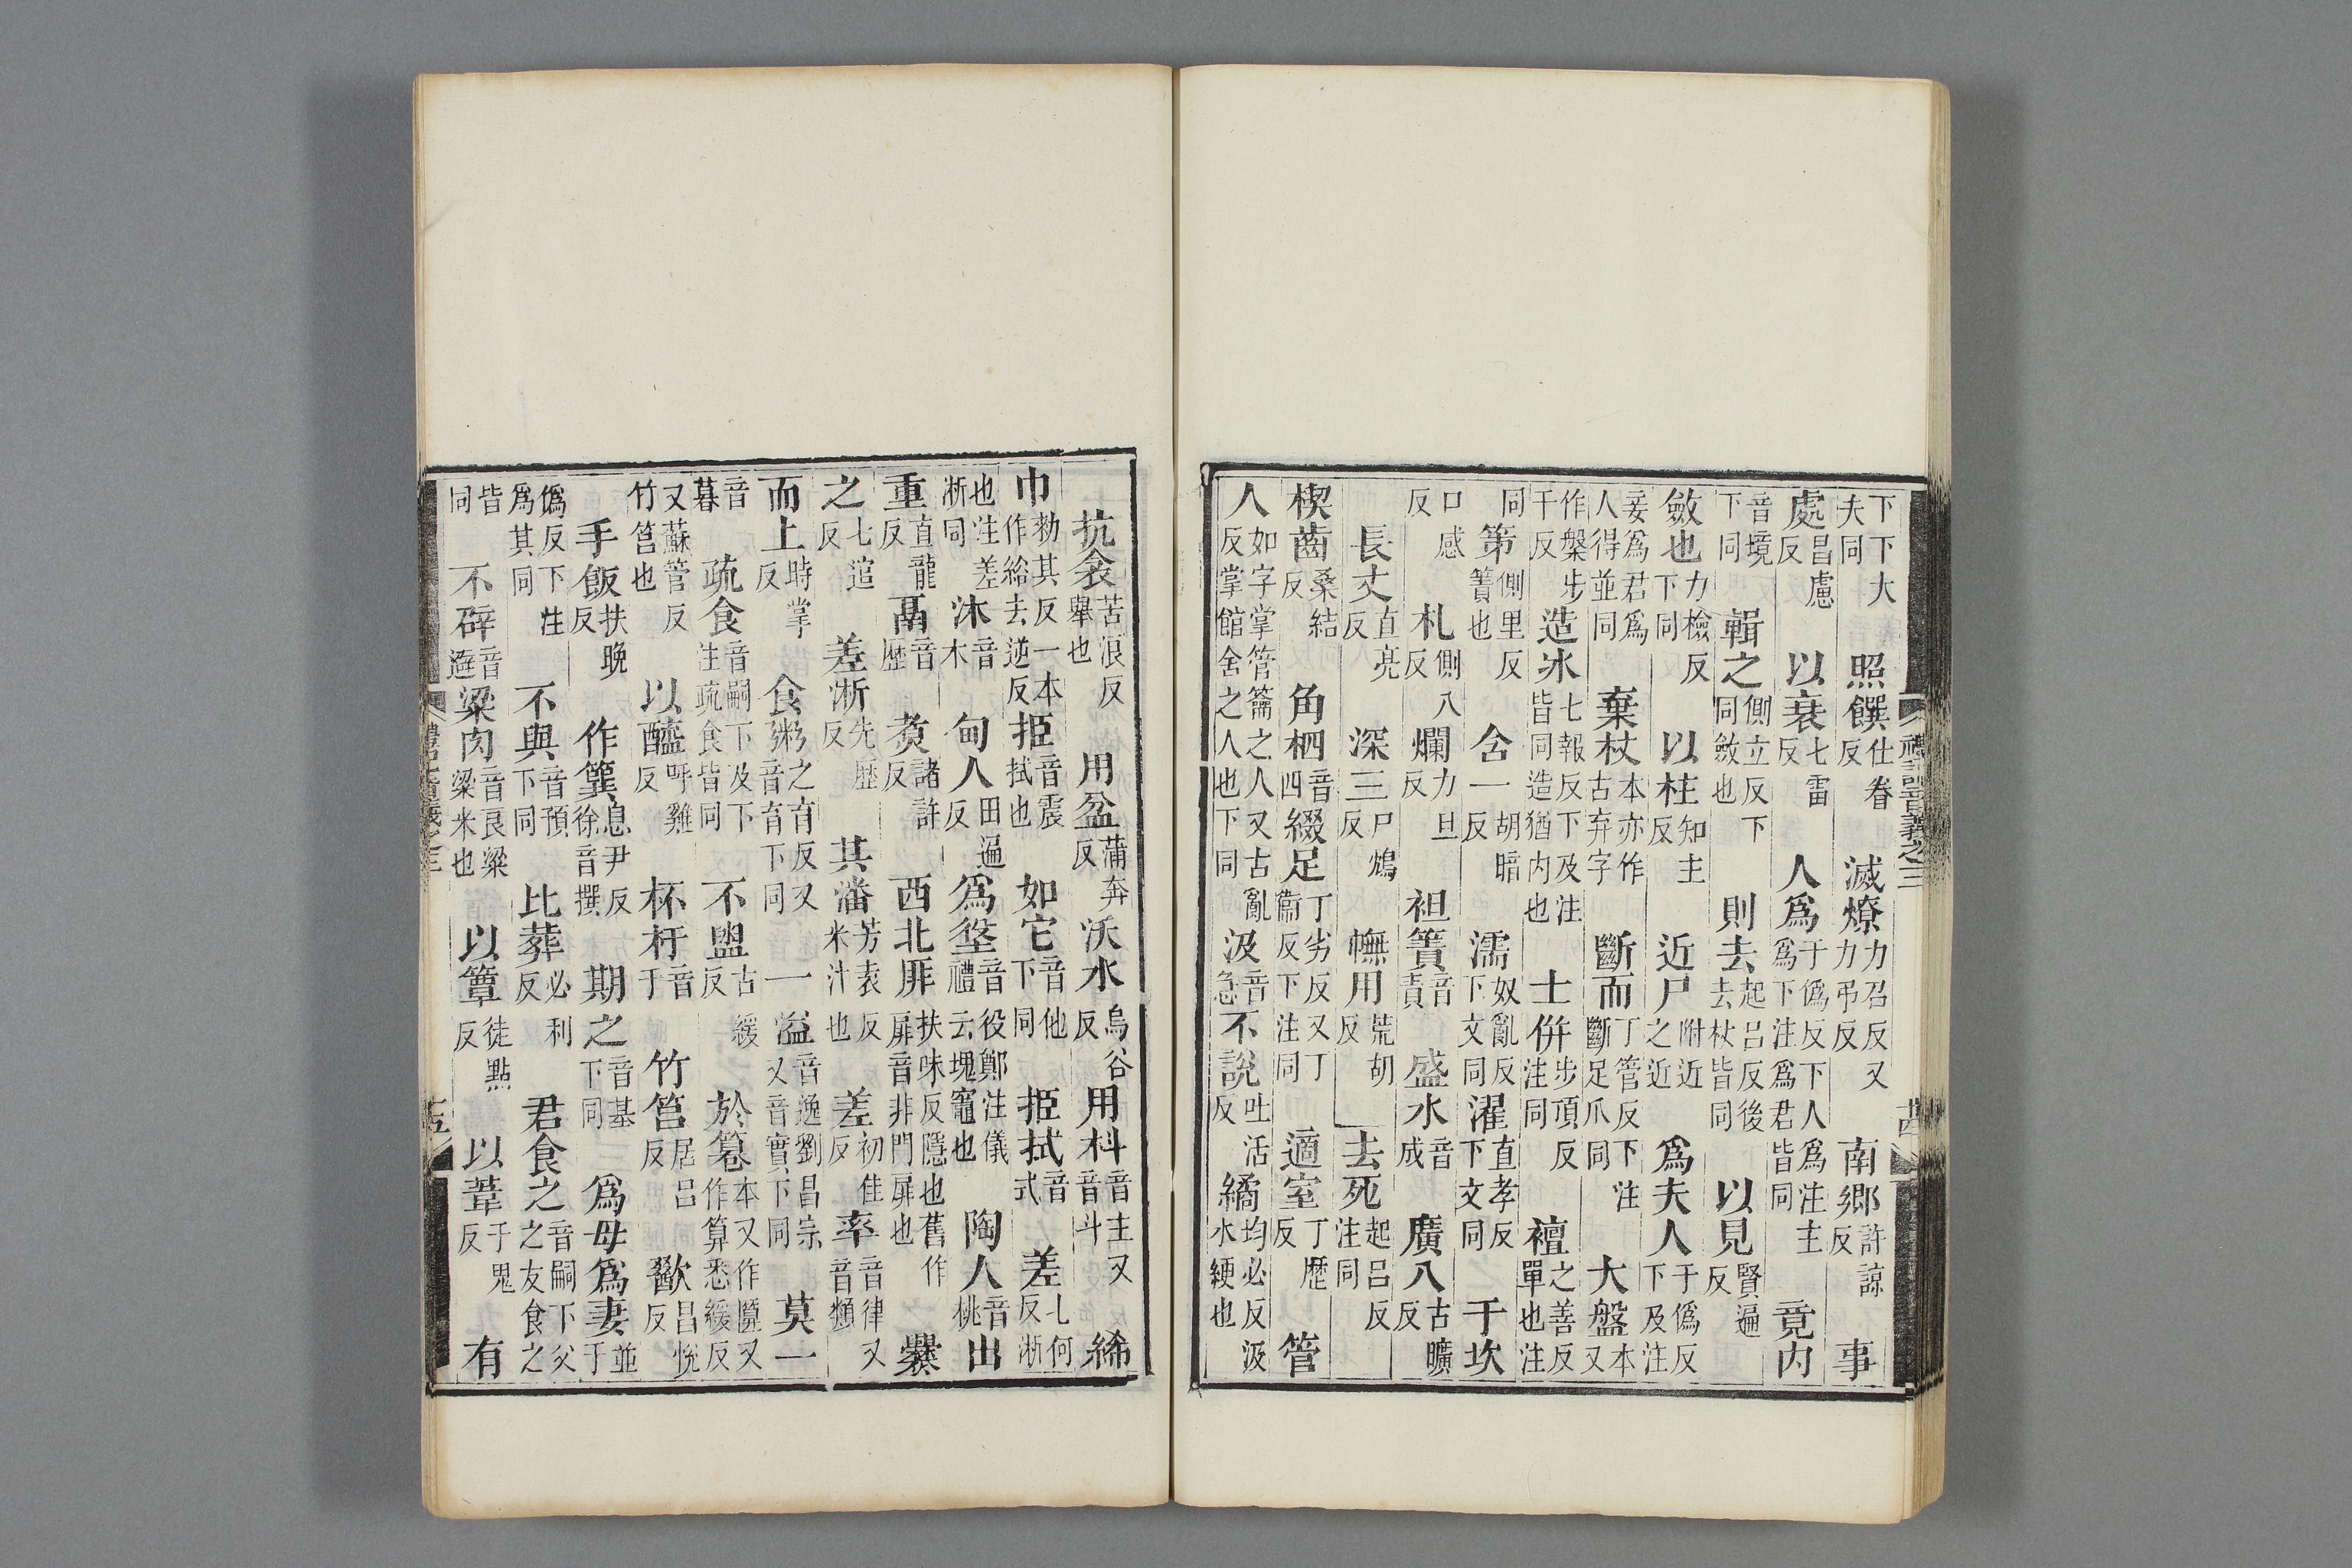 下下大夫同 照饌仕眷反 滅燎力召反又力弔反 南鄉許諒反 事
處昌慮反 以衰七雷反 人爲于僞反下人爲注爲下注爲君皆同 竟內
音境下同 輯之側立反下同斂也 則去起呂反後去杖皆同 以見賢遍反
斂也力檢反下同 以柱知主反 近尸附近之近 爲夫人于僞反下及注
妾爲君爲人得並同 棄杖本亦作古弃字 斷而丁管反下注斷足爪同 大盤本又
作槃步干反 造冰七報反下及注皆同造猶内也 士併步頂反注同 襢之善反注單也
同 第側里反簀也 含一胡暗反 濡奴亂反下文同 濯直孝反下文同 于坎
口感反 札側八反 爛力旦反 袒簀音責 盛水音成 廣八古曠反
長丈直亮反 深三尸鴆反 幠用荒胡反 去死起呂反注同
楔齒桑結反 角柶音四 綴足丁劣反又丁衞反下注同 適室丁歷反 管
人如字掌管籥之人又古亂反掌館舍之人也下同 汲音急 不說吐活反 繘均必反汲水綆也
禮記音義之三 廿四
抗衾苦浪反舉也 用盆蒲奔反 沃水烏谷反 用枓音主又音斗 絺
巾勑其反一本作綌去逆反 挋音震拭也 如它音他下同 挋拭音式 差七何反淅
也注差淅同 沐音木 甸人田遍反 爲垼音役鄭注儀禮云塊竈也 陶人音桃 出
重直龍反 鬲音歷 煑諸許反 西北厞扶味反隱也舊作扉音非門扉也 爨
之七逭反 差淅先歷反 其潘芳袁反米汁也 差初佳反 率音律又音類
而上時掌反 食粥之育反又音育下同 一溢音逸劉昌宗又音實下同 莫一
音暮 疏食音嗣下及下注疏食皆同 不盥古緩反 於篹本又作匴又作算悉緩反
又蘇管反竹筥也 以醯呼雞反 杯杅音于 竹筥居呂反 歠昌悅反
手飯扶晚反 作簨息尹反徐音撰 期之音基下同 爲母爲妻並于
僞反下注爲其同 不與音預下同 比葬必利反 君食之音嗣下父之友食之
皆同 不辟音避 粱肉音良粱粱米也 以簟徒點反 以葦于鬼反 有
禮記音義之三